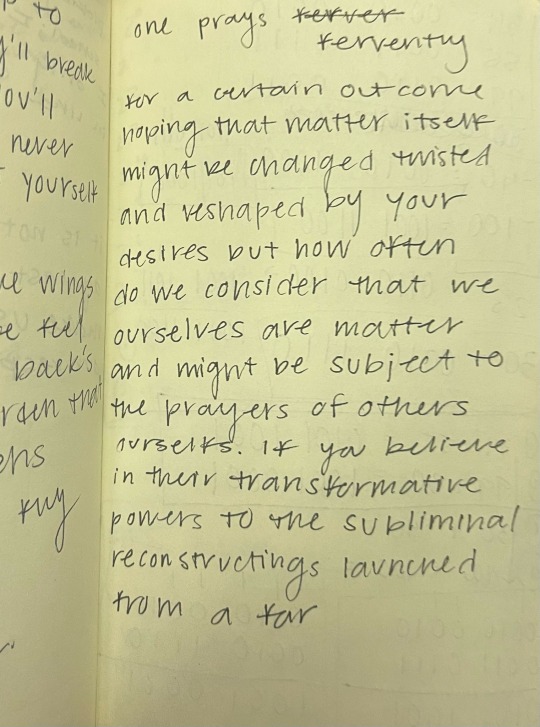 to
y'll break
ou'll
never
yourself
wings
feel
back's
that
one prays ferver
fervently
for a certain outcome
hoping that matter itself
might be changed twisted
and reshaped by your
desires but how often
do we consider that we
ourselves are matter
and might be subject to
the prayers of others
ourselfs. If you believe
in their transformative
powers to the subliminal
reconstructings launched
from a far